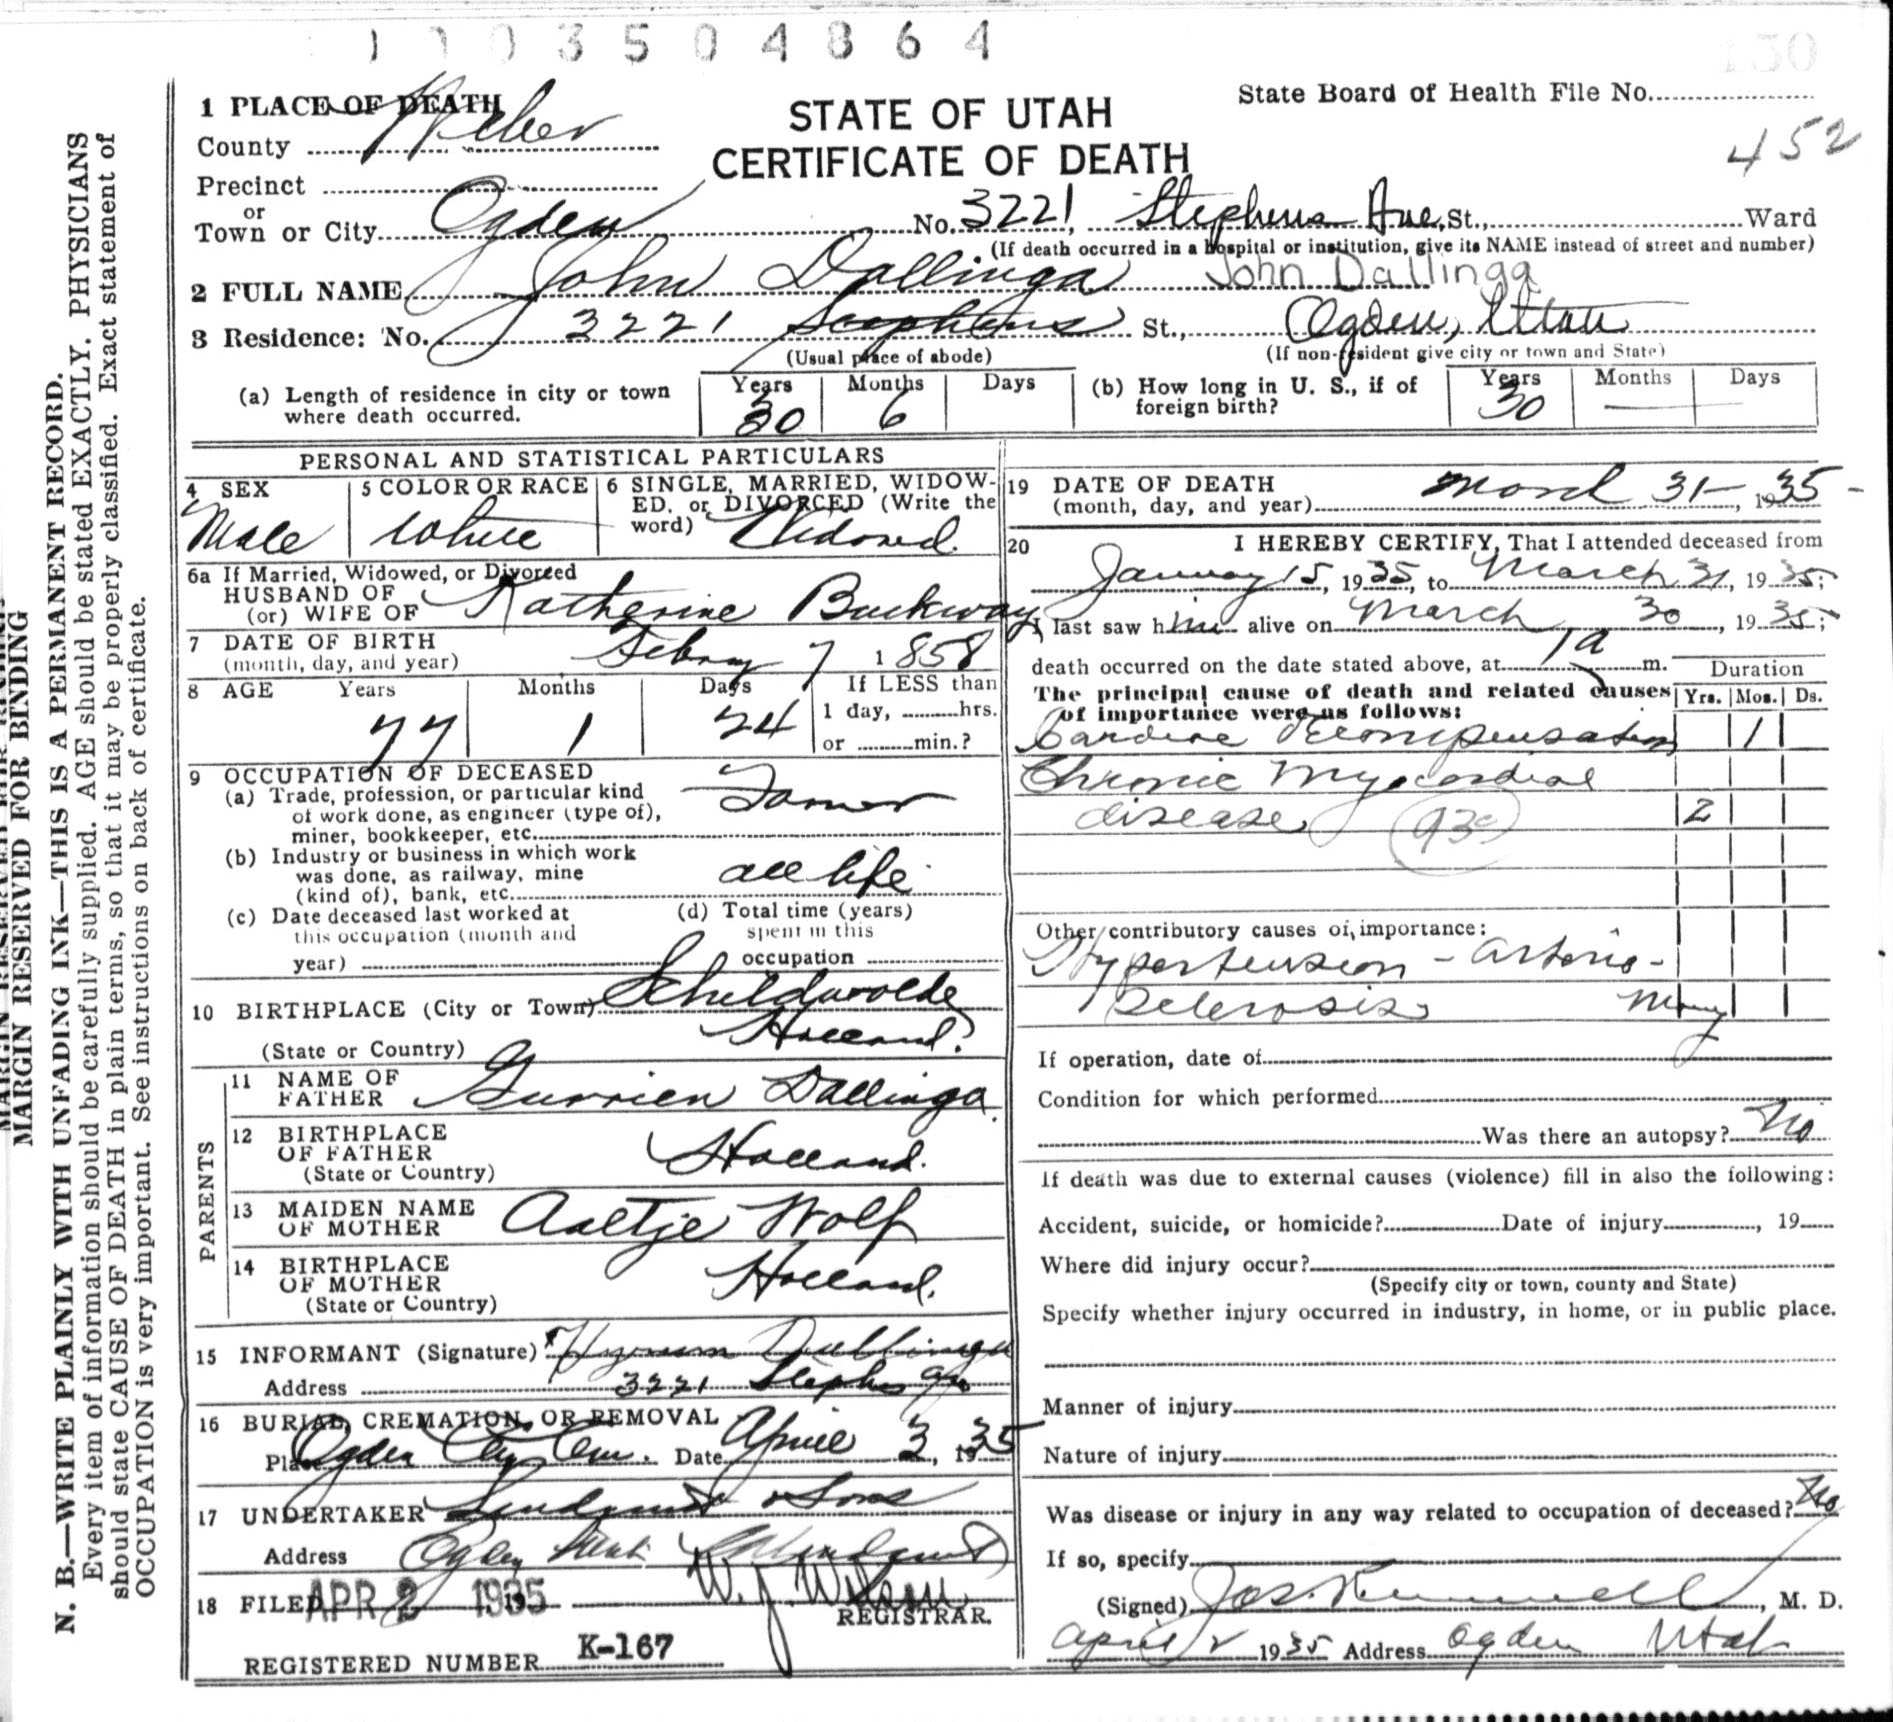 1 1 0 3 5 0 4 8 6 4
130
1 PLACE OF DEATH
STATE OF UTAH
CERTIFICATE OF DEATH
State Board of Health File No.
452
County Weber
Precinct
or
Town or City Ogden No. 3221, Stephens Ave, St., Ward
(If death occurred in a hospital or institution, give its NAME instead of street and number)
2 FULL NAME John Dallinga John Dallinga
3 Residence: No. 3221 Stephens St., Ogden, Utah
(Usual place of abode) (If non-resident give city or town and State)
(a) Length of residence in city or town where death occurred. Years 30 Months 6 Days
(b) How long in U. S., if of foreign birth? Years 30 Months — Days —
PERSONAL AND STATISTICAL PARTICULARS
4 SEX Male
5 COLOR OR RACE White
6 SINGLE, MARRIED, WIDOW-
ED. or DIVORCED (Write the
word) Widowed.
6a If Married, Widowed, or Divorced
HUSBAND OF
(or) WIFE OF Katherine Buckway
7 DATE OF BIRTH
(month, day, and year) Febry 7 1858
8 AGE Years 77 Months 1 Days 24 If LESS than
1 day, hrs.
or min.?
9 OCCUPATION OF DECEASED
(a) Trade, profession, or particular kind
of work done, as engineer (type of),
miner, bookkeeper, etc. Farmer
(b) Industry or business in which work
was done, as railway, mine
(kind of), bank, etc. all life
(c) Date deceased last worked at
this occupation (month and
year)
(d) Total time (years)
spent in this
occupation
10 BIRTHPLACE (City or Town) Schildwolde
(State or Country) Holland.
PARENTS
11 NAME OF
FATHER Gurrien Dallinga
12 BIRTHPLACE
OF FATHER
(State or Country) Holland.
13 MAIDEN NAME
OF MOTHER Aaltje Wolf
14 BIRTHPLACE
OF MOTHER
(State or Country) Holland.
15 INFORMANT (Signature) Hyrum Dallinga
Address 3221 Stephens Ave
16 BURIAL, CREMATION, OR REMOVAL
Place Ogden City Cem. Date April 3, 1935
17 UNDERTAKER Lindquist & Sons
Address Ogden Utah
18 FILED APR 2 1935 W. J. Wilson
REGISTRAR.
REGISTERED NUMBER K-167
19 DATE OF DEATH
(month, day, and year) March 31-, 1935 -
20 I HEREBY CERTIFY, That I attended deceased from
January 15, 1935, to March 31, 1935;
I last saw him alive on March 30, 1935;
death occurred on the date stated above, at 1 a m.
The principal cause of death and related causes
of importance were as follows:
Duration
Yrs. Mos. Ds.
Cardiac Decompensation 1
Chronic Myocardial
disease 93c 2
Other contributory causes of importance:
Hypertension - arterio-
sclerosis Many
If operation, date of
Condition for which performed
Was there an autopsy? No
If death was due to external causes (violence) fill in also the following:
Accident, suicide, or homicide? Date of injury, 19
Where did injury occur?
(Specify city or town, county and State)
Specify whether injury occurred in industry, in home, or in public place.
Manner of injury
Nature of injury
Was disease or injury in any way related to occupation of deceased? No
If so, specify
(Signed) , M. D.
April 2 1935 Address Ogden Utah
MARGIN RESERVED FOR BINDING
N. B.—WRITE PLAINLY WITH UNFADING INK—THIS IS A PERMANENT RECORD.
Every item of information should be carefully supplied. AGE should be stated EXACTLY. PHYSICIANS
should state CAUSE OF DEATH in plain terms, so that it may be properly classified. Exact statement of
OCCUPATION is very important. See instructions on back of certificate.